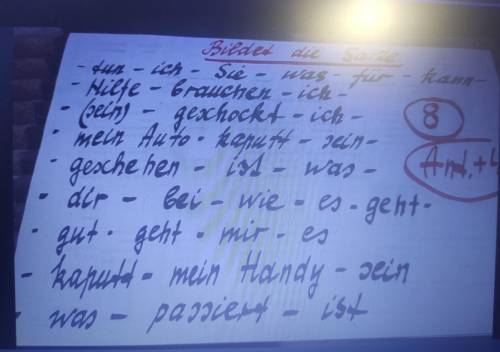 Bildet die Sätze
- tun - ich - Sie - was - für - kann -
- Hilfe - brauchen - ich -
- (sein) - geschockt - ich -
- mein Auto - kaputt - sein -
- geschehen - ist - was -
- dir - bei - wie - es - geht -
- gut - geht - mir - es
- kaputt - mein Handy - sein
- was - passiert - ist
8